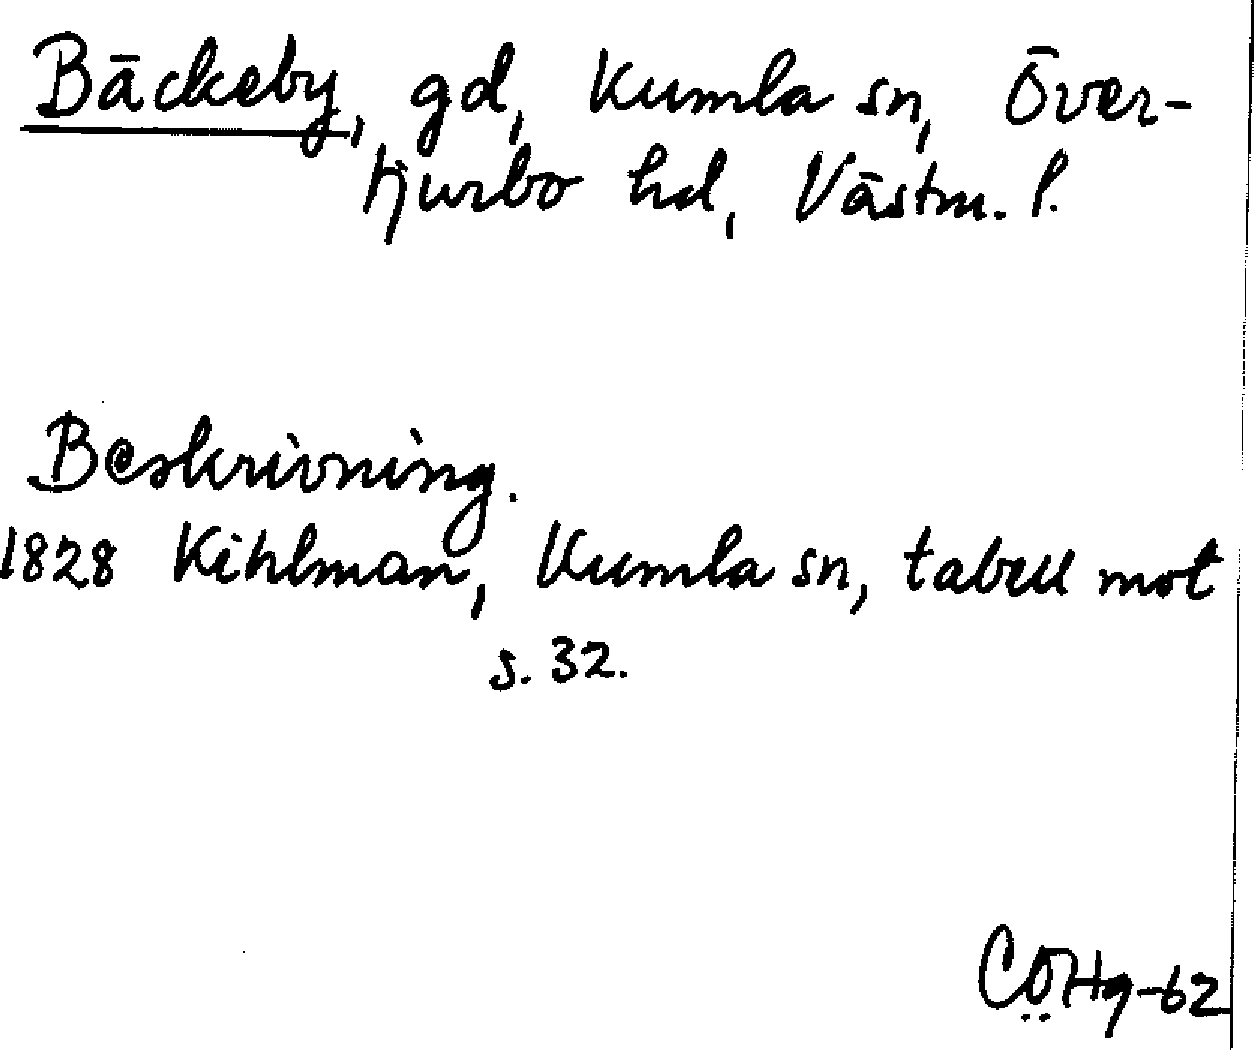 Bäckeby, gd, Kumla sn, Över-
tjurbo hd, Västm. l.
Beskrivning.
1828 Kihlman, Kumla sn, tabell mot
s. 32.